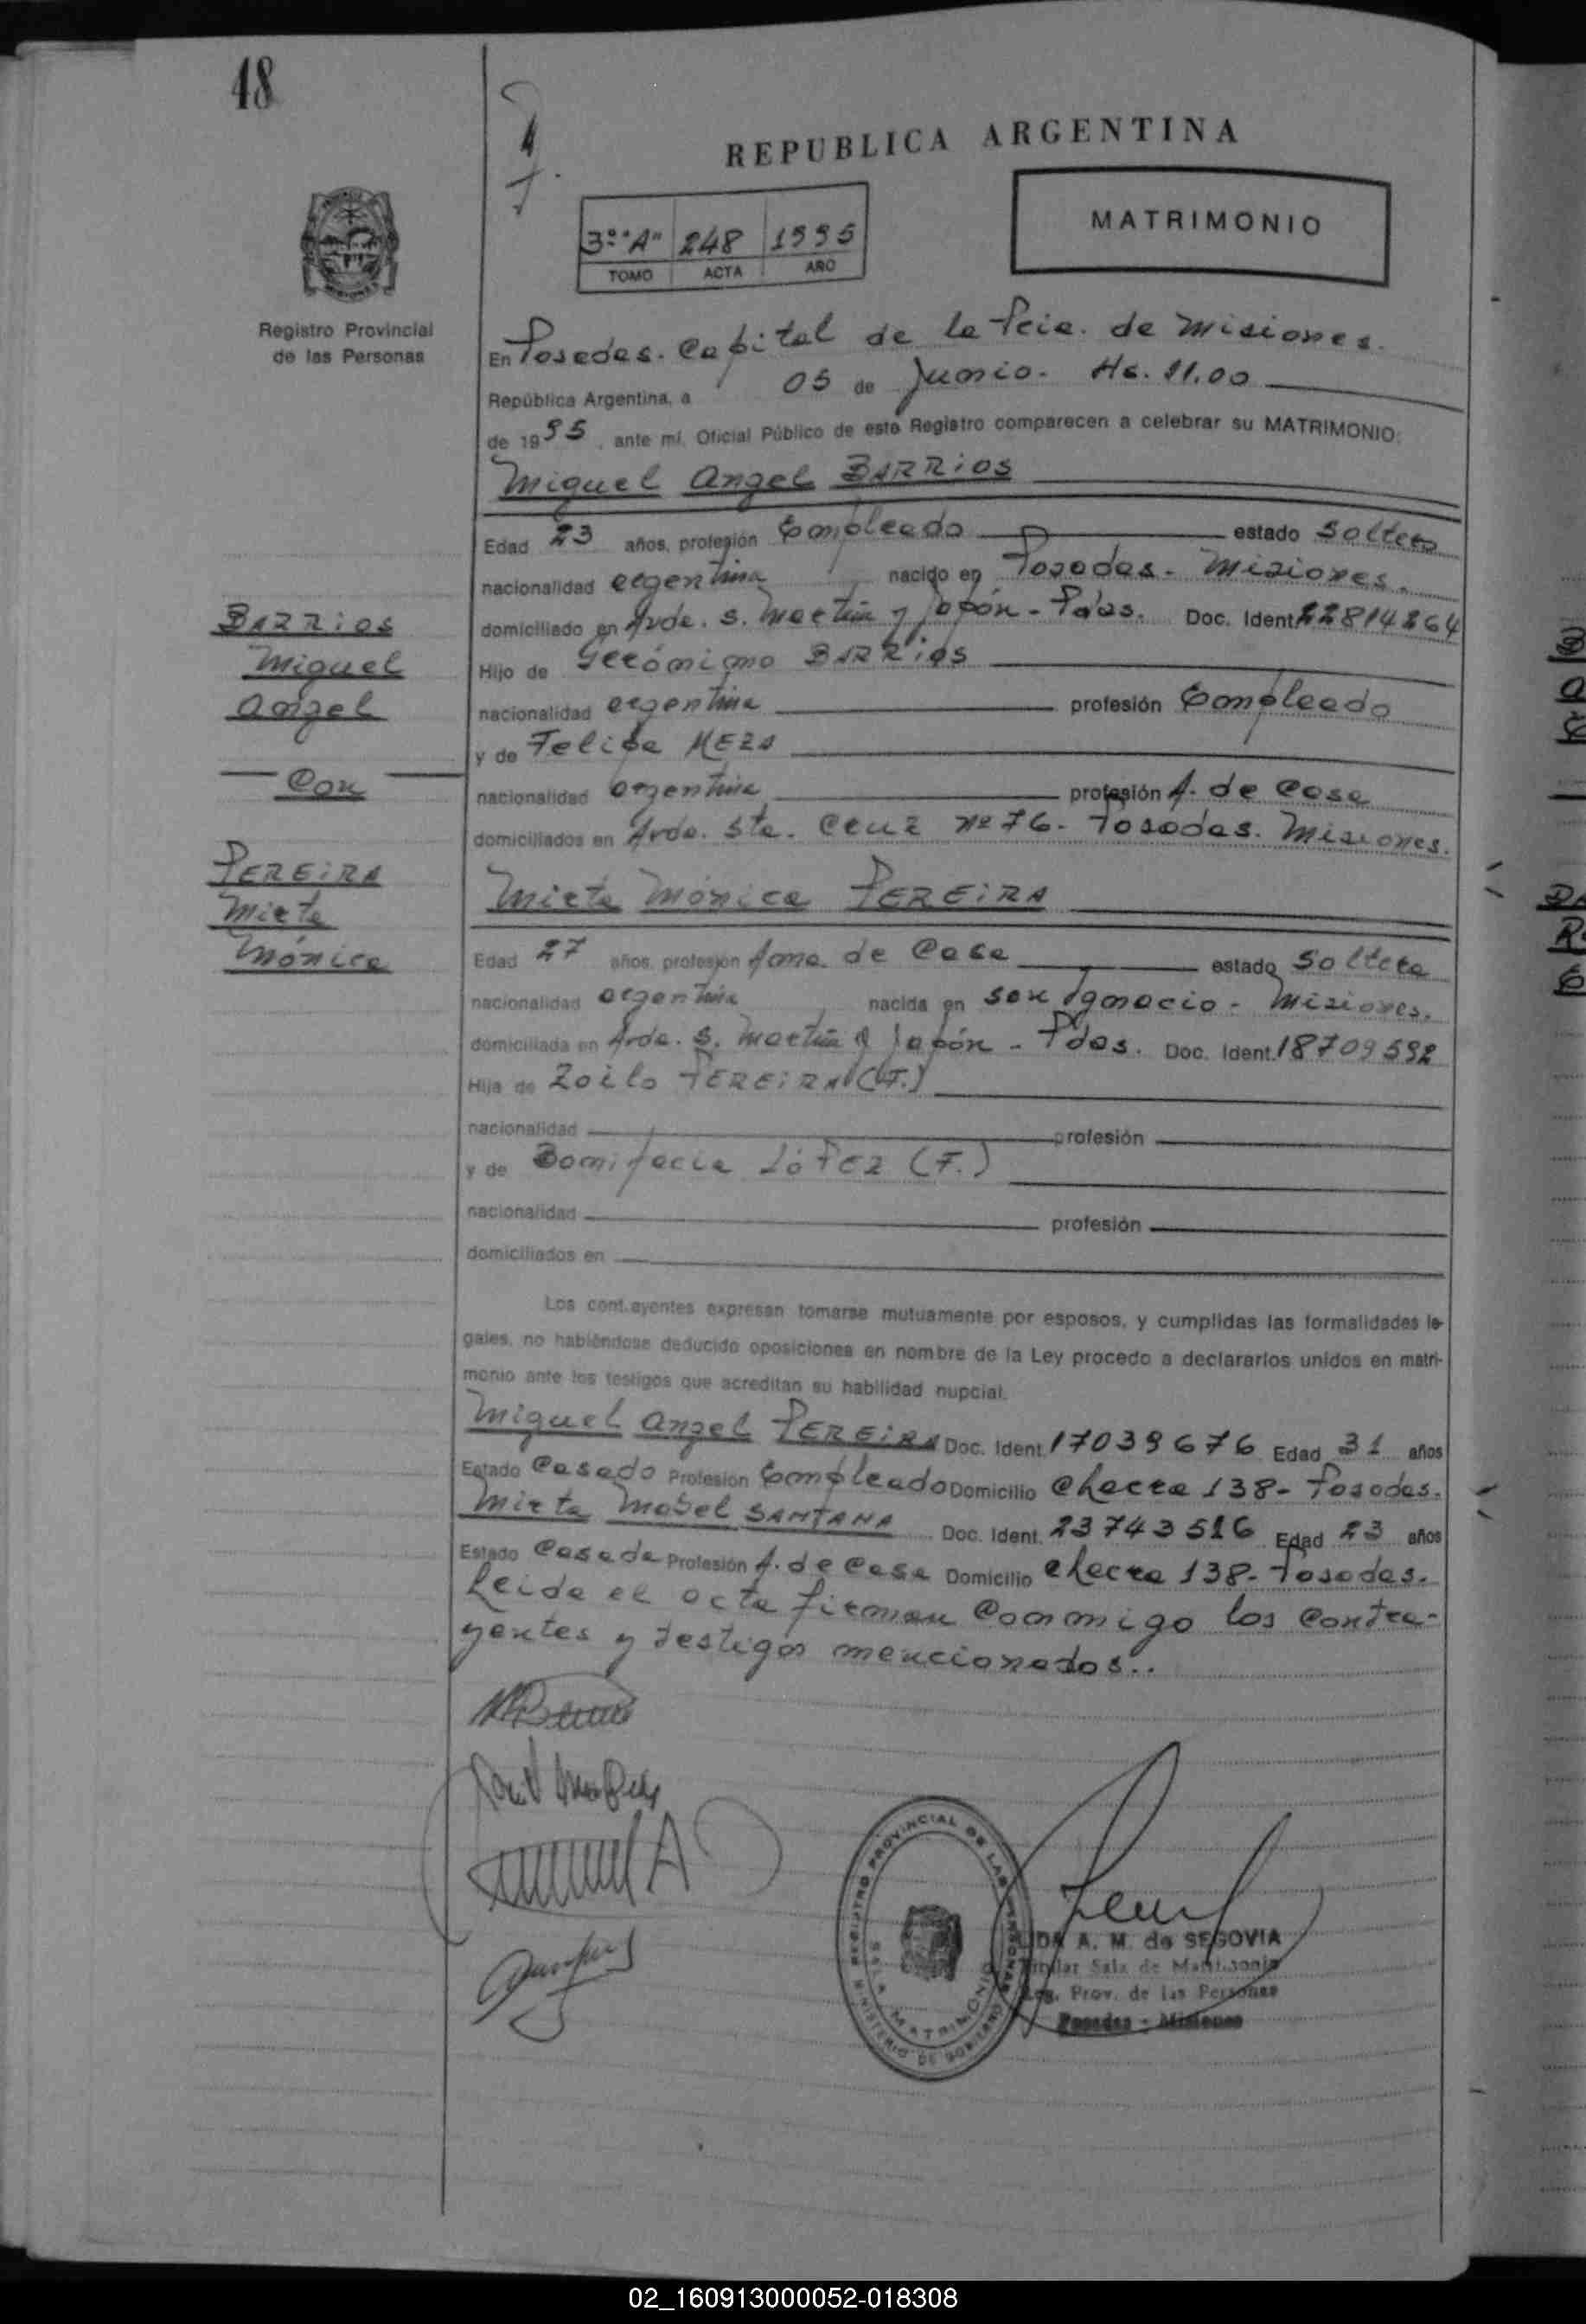 48
REPUBLICA ARGENTINA
MATRIMONIO
3º "A" 248 1995
TOMO ACTA AÑO
Registro Provincial
de las Personas
En Posadas. Capital de la Pcia. de Misiones.
República Argentina, a 05 de Junio. Hs. 11.00
de 1995, ante mí, Oficial Público de este Registro comparecen a celebrar su MATRIMONIO:
Miguel Angel BARRIOS
Edad 23 años, profesión Empleado estado Soltero
nacionalidad argentina nacido en Posadas - Misiones.
domiciliado en Avda. S. Martín y Japón - Pdas. Doc. Ident. 22814264
Hijo de Gerónimo BARRIOS
nacionalidad argentina profesión Empleado
y de Felipa MEZA
nacionalidad argentina profesión A. de Casa
domiciliados en Avda. Sta. Cruz Nº 76 - Posadas. Misiones.
BARRIOS
Miguel
Angel
Con
PEREIRA
Mirta
Mónica
Mirta Mónica PEREIRA
Edad 27 años, profesión Ama de Casa estado Soltera
nacionalidad argentina nacida en San Ignacio - Misiones.
domiciliada en Avda. S. Martín y Japón - Pdas. Doc. Ident. 18709592
Hija de Zoilo PEREIRA (F.)
nacionalidad profesión
y de Bonifacia LÓPEZ (F.)
nacionalidad profesión
domiciliados en
Los contrayentes expresan tomarse mutuamente por esposos, y cumplidas las formalidades le-
gales, no habiéndose deducido oposiciones en nombre de la Ley procedo a declararlos unidos en matri-
monio ante los testigos que acreditan su habilidad nupcial.
Miguel Angel PEREIRA Doc. Ident. 17039676 Edad 31 años
Estado Casado Profesión Empleado Domicilio Chacra 138 - Posadas.
Mirta Mabel SANTANA Doc. Ident. 23743516 Edad 23 años
Estado Casada Profesión A. de Casa Domicilio Chacra 138 - Posadas.
Leida el acta firman conmigo los contra-
yentes y testigos mencionados..
REGISTRO PROVINCIAL DE LAS PERSONAS
SALA MATRIMONIO
MINISTERIO DE GOBIERNO
A. M. de SEGOVIA
Titular Sala de Matrimonio
Reg. Prov. de las Personas
Posadas - Misiones
02_160913000052-018308